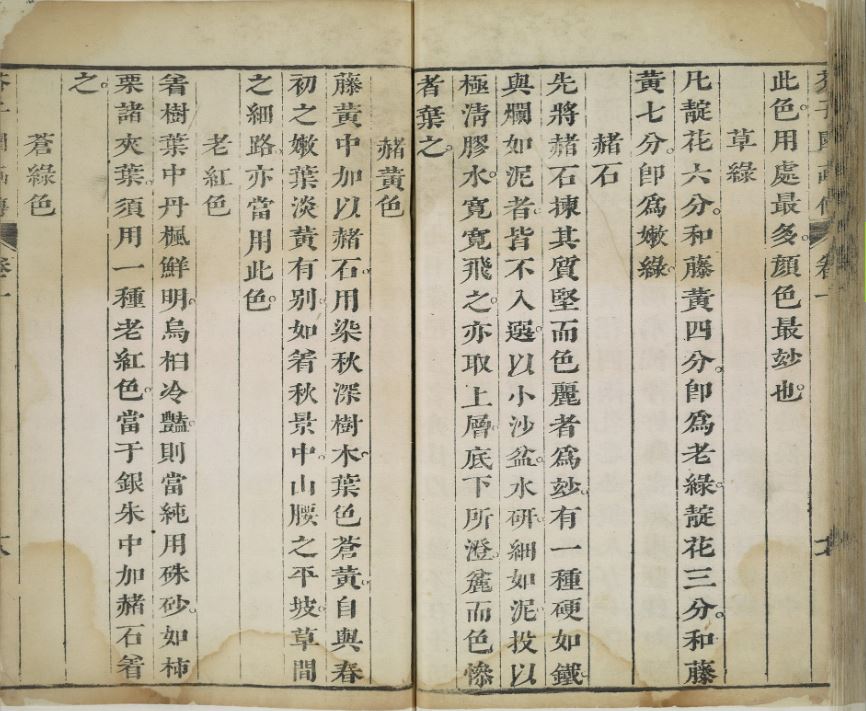 此色。用處最多。顏色最玅也。
草綠
凡靛花六分。和藤黃四分。卽爲老綠。靛花三分。和藤
黃七分。卽爲嫩綠。
赭石
先將赭石揀其質堅而色麗者爲玅。有一種硬如鐵。
與爛如泥者。皆不入選。以小沙盆。水研。細如泥。投以
極清膠水。寬寬飛之。亦取上層。底下所澄麄而色慘
者棄之。
赭黃色
藤黃中加以赭石。用染秋深樹木。葉色蒼黃。自與春
初之嫩葉淡黃有别。如着秋景中。山腰之平坡。草間
之細路。亦當用此色。
老紅色
着樹葉中丹楓鮮明。烏桕冷豔。則當純用硃砂。如柿
栗諸夾葉。須用一種老紅色。當于銀朱中加赭石着
之。
蒼綠色